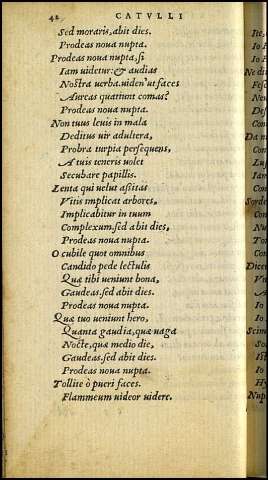 42 CATVLLI
Sed moraris, abit dies.
Prodeas noua nupta.
Prodeas noua nupta, si
Iam uidetur: & audias
Nostra uerba. uiden' ut faces
Aureas quatiunt comas?
Prodeas noua nupta.
Non tuus leuis in mala
Deditus uir adultera,
Probra turpia persequens,
A tuis teneris uolet
Secubare papillis.
Lenta qui uelut assitas
Vitis implicat arbores,
Implicabitur in tuum
Complexum. sed abit dies,
Prodeas noua nupta.
O cubile quot omnibus
Candido pede lectulis
Quæ tibi ueniunt bona,
Gaudeas. sed abit dies.
Prodeas noua nupta.
Quæ tuo ueniunt hero,
Quanta gaudia, quæ uaga
Nocte, quæ medio die,
Gaudeas. sed abit dies.
Prodeas noua nupta.
Tollite ò pueri faces.
Flammeum uideor uidere.